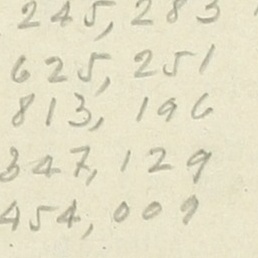 245, 283
625, 251
813, 196
347, 129
454, 009